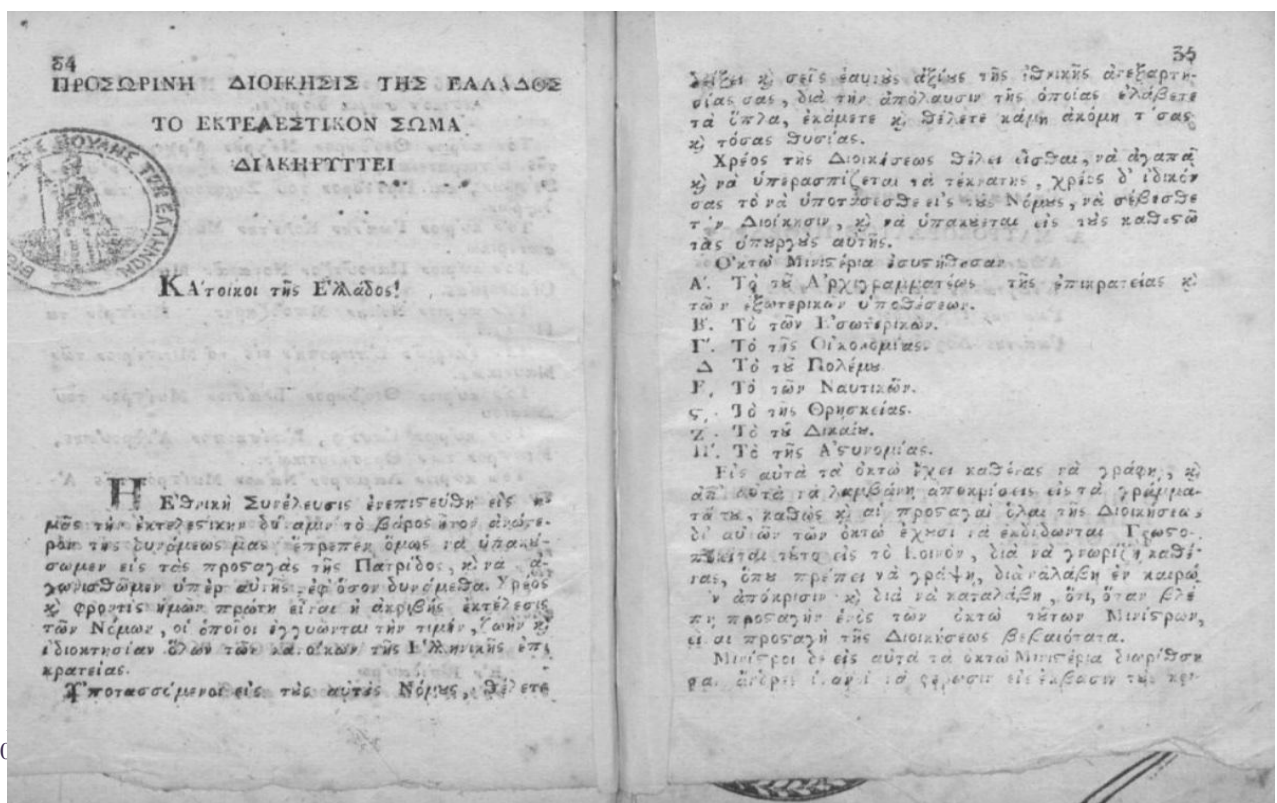 34
ΠΡΟΣΩΡΙΝΗ ΔΙΟΙΚΗΣΙΣ ΤΗΣ ΕΛΛΑΔΟΣ
ΤΟ ΕΚΤΕΛΕΣΤΙΚΟΝ ΣΩΜΑ
ΔΙΑΚΗΡΥΤΤΕΙ
ΚΑ᾽τοικοι τῆς Ε᾽λλάδος!
Η Ε᾽θνικὴ Συνέλευσις ἐνεπιςεύθη εἰς ἡ-
μᾶς τὴν ἐκτελεςικὴν δύναμιν τὸ βάρος ἦτον ἀνώτε-
ρον τῆς δυνάμεως μας ἔπρεπεν ὅμως νὰ ὑπακύ-
σωμεν εἰς τὰς προςαγὰς τῆς Πατρίδος, ϗ νὰ ἀ-
γωνισθῶμεν ὑπὲρ αὐτῆς ἐφ᾽ ὅσον δυνάμεθα. Χρέος
ϗ φροντὶς ἡμῶν πρώτη εἶναι ἡ ἀκριβὴς ἐκτέλεσις
τῶν Νόμων, οἱ ὁποῖοι ἐγγυῶνται τὴν τιμὴν, ζωὴν ϗ
ἰδιοκτησίαν ὅλων τῶν κατοίκων τῆς Ε᾽λληνικῆς ἐπι
κρατείας.
Υ῾ποτασσόμενοι εἰς τȣ̀ς αὐτȣ̀ς Νόμȣς, θέλετε
35
δείξει ϗ σεῖς ἑαυτȣ̀ς ἀξίȣς τῆς ἐθνικῆς ἀνεξαρτη-
σίας σας, διὰ τὴν ἀπόλαυσιν τῆς ὁποίας ἐλάβετε
τὰ ὅπλα, ἐκάμετε ϗ θέλετε κάμῃ ἀκόμη τ σας
ϗ τόσας θυσίας.
Χρέος τῆς Διοικήσεως θέλει εἶσθαι, νὰ ἀγαπᾷ
ϗ νὰ ὑπερασπίζεται τὰ τέκνατης, χρέος δ᾽ ἰδικόν
σας τὸ νὰ ὑποτάσσεσθε εἰς τȣ̀ς Νόμȣς, νὰ σέβεσθε
τ ν Διοίκησιν, ϗ νὰ ὑπακȣεται εἰς τȣ̀ς καθεςῶ
τας ὑπȣργȣ̀ς αὐτῆς.
Ο᾽κτὼ Μινιςέρια ἐσυςήθησαν.
Α᾽. Τὸ τȣ͂ Α᾽ρχιγραμματέως τῆς ἐπικρατείας ϗ
τῶν ἐξωτερικῶν ὑποθέσεων.
Β᾽. Τὸ τῶν Ε᾽σωτερικῶν.
Γ᾽. Τὸ τῆς Οἰκονομίας.
Δ Τὸ τȣ͂ Πολέμȣ
Ε, Τὸ τῶν Ναυτικῶν.
ς. Τὸ τῆς Θρησκείας.
Ζ. Τὸ τȣ͂ Δικαίȣ.
Η᾽. Τὸ τῆς Α᾽ςυνομίας.
Εἰς αὐτὰ τὰ ὀκτὼ ἔχει καθένας νὰ γράφῃ, ϗ
ἀπ᾽ αὐτὰ νὰ λαμβάνῃ ἀποκρίσεις εἰς τὰ γράμμα-
τά τȣ, καθὼς ϗ αἱ προςαγαὶ ὅλαι τῆς Διοικήσεως
δι᾽ αὐτῶν τῶν ὀκτὼ ἔχȣσι νὰ ἐκδίδωνται Γνωςο-
ποιεῖται τȣ͂το εἰς τὸ Κοινὸν, διὰ νὰ γνωρίζῃ καθέ-
νας, ὅπȣ πρέπει νὰ γράψῃ, διὰ νὰ λάβῃ ἐν καιρῷ
ν ἀπόκρισιν ϗ διὰ νὰ καταλάβῃ, ὅτι, ὅταν βλέ
πῃ προςαγὴν ἑνὸς τῶν ὀκτὼ τȣ́των Μινίςρων,
εἶναι προςαγὴ τῆς Διοικήσεως βεβαιότατα.
Μινίςροι δὲ εἰς αὐτὰ τὰ ὀκτὼ Μινιςέρια διωρίσθη
σαν ἄνδρες ἱκανοὶ νὰ φέρωσιν εἰς ἔκβασιν τῶν